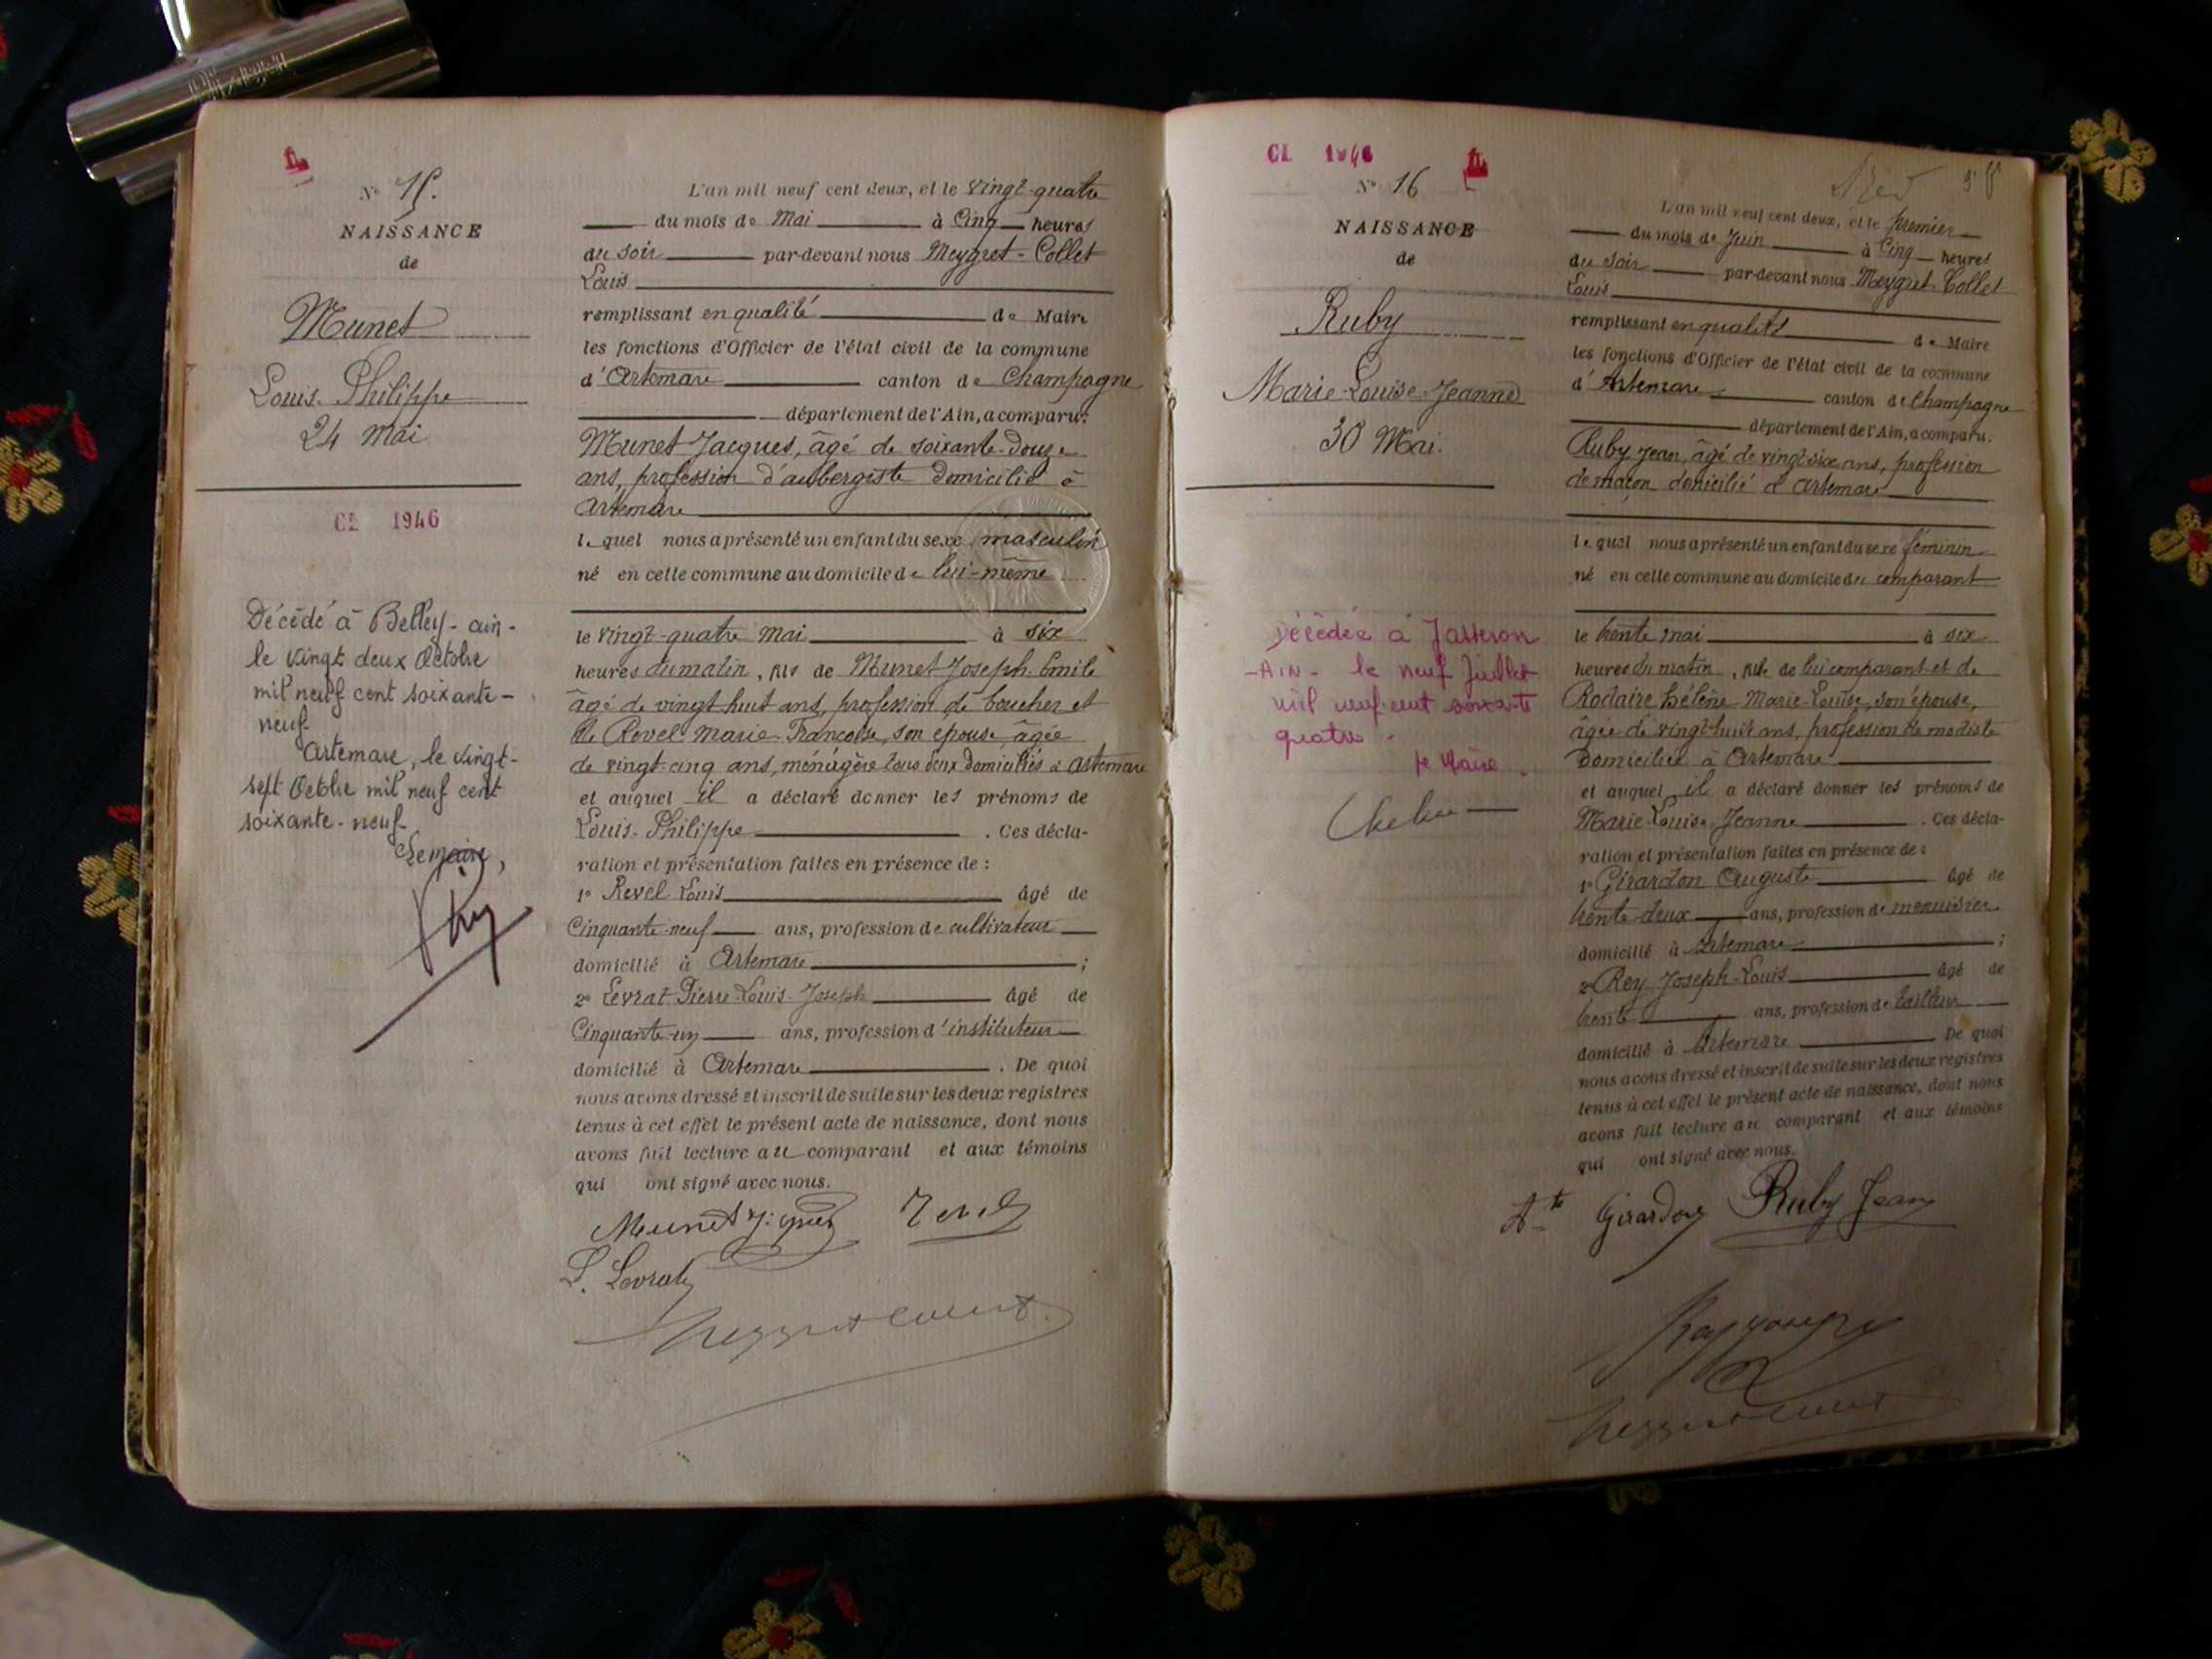 N° 15.
NAISSANCE
de
Munet
Louis-Philippe
24 Mai
CL 1946
Décédé à Belley - ain -
le vingt deux Octobre
mil neuf cent soixante -
neuf
Artemare, le vingt-
sept Octobre mil neuf cent
soixante-neuf
Le maire,
L'an mil neuf cent deux, et le vingt-quatre
du mois de Mai à Cinq heures
du soir par-devant nous Meygret-Collet
Louis
remplissant en qualité de Maire
les fonctions d'Officier de l'état civil de la commune
d'Artemare canton de Champagne
département de l'Ain, a comparu:
Munet Jacques, âgé de soixante-douze
ans, profession d'aubergiste domicilié à
Artemare
lequel nous a présenté un enfant du sexe masculin
né en cette commune au domicile de lui-même
le vingt-quatre mai à six
heures du matin, fils de Munet Joseph-Emile
âgé de vingt huit ans, profession de boucher et
de Revel Marie-Françoise, son épouse âgée
de vingt-cinq ans, ménagère tous deux domiciliés à Artemare
et auquel il a déclaré donner les prénoms de
Louis-Philippe . Ces décla-
ration et présentation faites en présence de :
1° Revel Louis âgé de
Cinquante-neuf ans, profession de cultivateur
domicilié à Artemare ;
2° Levrat Pierre-Louis-Joseph âgé de
Cinquante-un ans, profession d'instituteur
domicilié à Artemare . De quoi
nous avons dressé et inscrit de suite sur les deux registres
tenus à cet effet le présent acte de naissance, dont nous
avons fait lecture au comparant et aux témoins
qui ont signé avec nous.
Munet Revel
L. Levrat
Meygret Collet
CL 1946
N° 16
NAISSANCE
de
Ruby
Marie-Louise-Jeanne
30 Mai.
Décédée à Jasseron
- AIN - le neuf Juillet
mil neuf cent soixante
quatre.
le Maire.
L'an mil neuf cent deux, et le premier
du mois de Juin à Cinq heures
du soir par-devant nous Meygret-Collet
Louis
remplissant en qualité de Maire
les fonctions d'Officier de l'état civil de la commune
d'Artemare canton de Champagne
département de l'Ain, a comparu.
Ruby Jean, âgé de vingt-six ans, profession
de maçon domicilié à Artemare
lequel nous a présenté un enfant du sexe féminin
né en cette commune au domicile du comparant
le trente mai à six
heures du matin, fille de lui comparant et de
Rodaire Hélène-Marie-Louise, son épouse,
âgée de vingt-huit ans, profession de modiste
domiciliée à Artemare
et auquel il a déclaré donner les prénoms de
Marie-Louise-Jeanne . Ces décla-
ration et présentation faites en présence de :
1° Girardon Auguste âgé de
trente-deux ans, profession de menuisier
domicilié à Artemare ;
2° Rey Joseph-Louis âgé de
trente ans, profession de tailleur
domicilié à Artemare De quoi
nous avons dressé et inscrit de suite sur les deux registres
tenus à cet effet le présent acte de naissance, dont nous
avons fait lecture au comparant et aux témoins
qui ont signé avec nous.
Girardon Ruby Jean
Meygret Collet